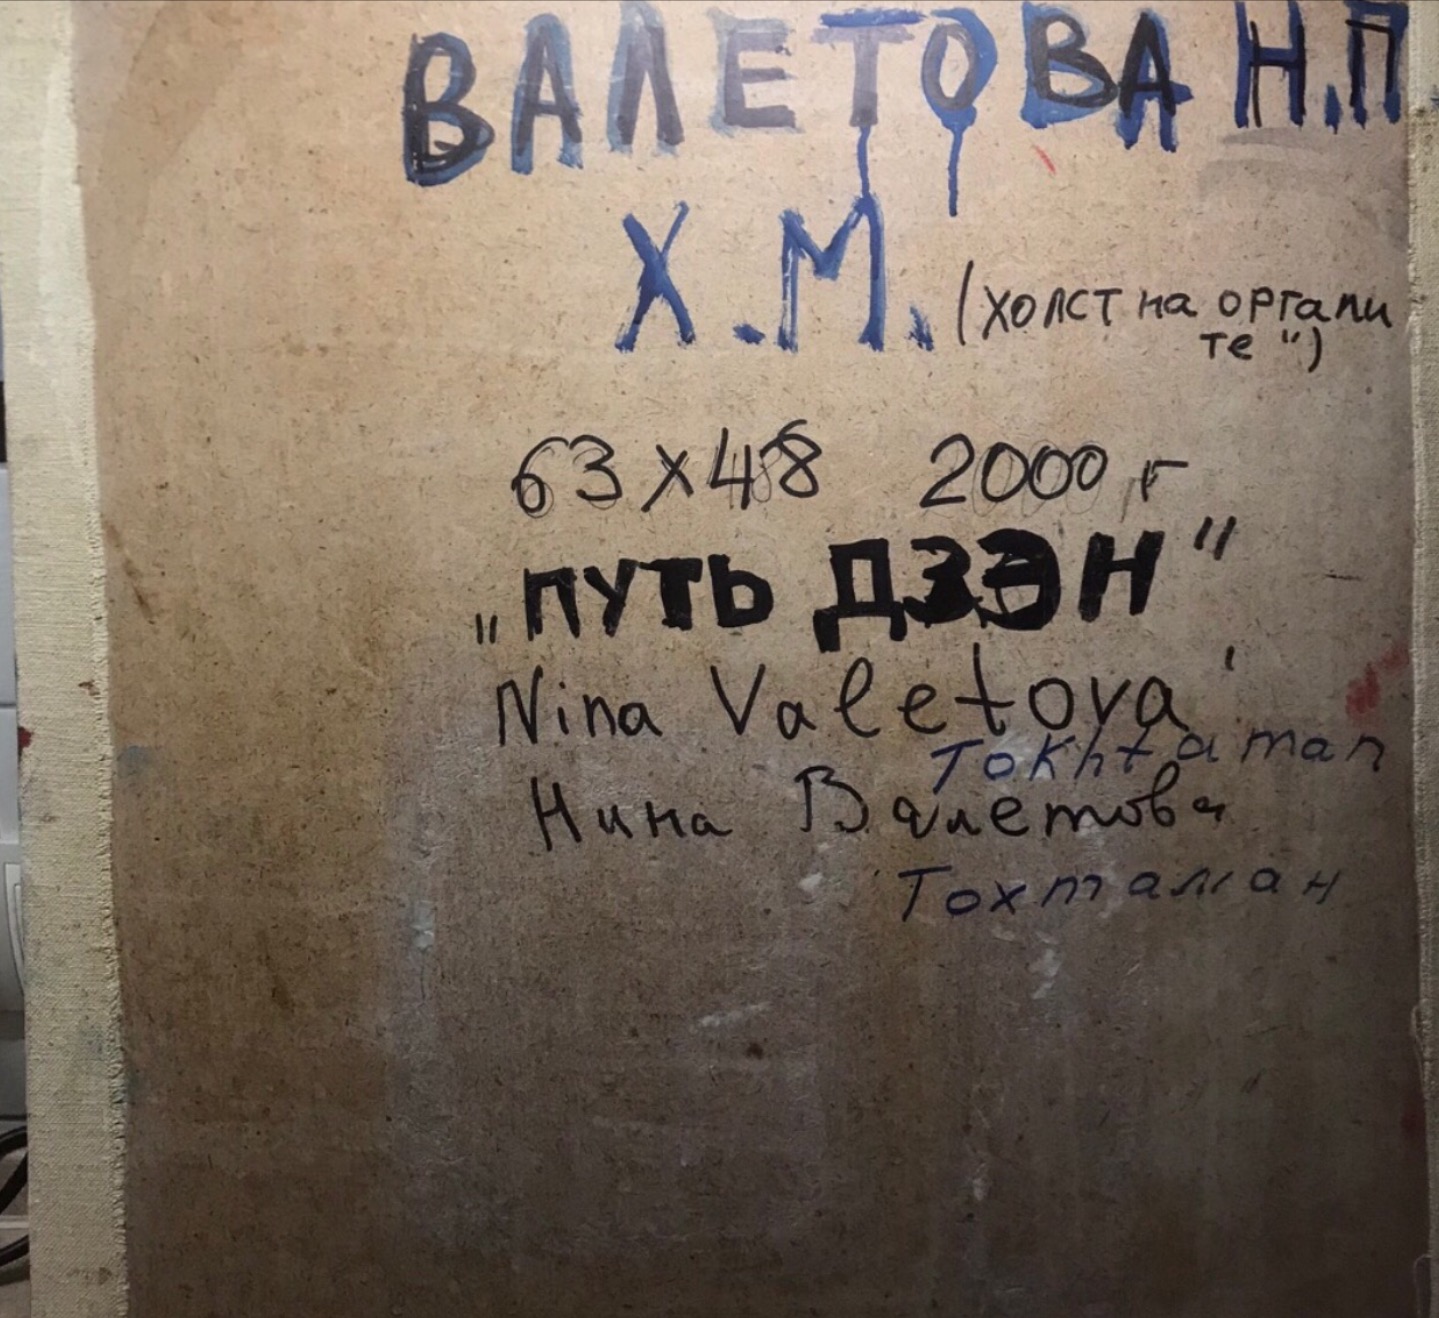 ВАЛЕТОВА Н.П
Х.М. (холст на оргали
те")
63х48 2000 г
„ПУТЬ ДЗЭН"
Nina Valetova
Tokhtaman
Нина Валетова
Тохтаман